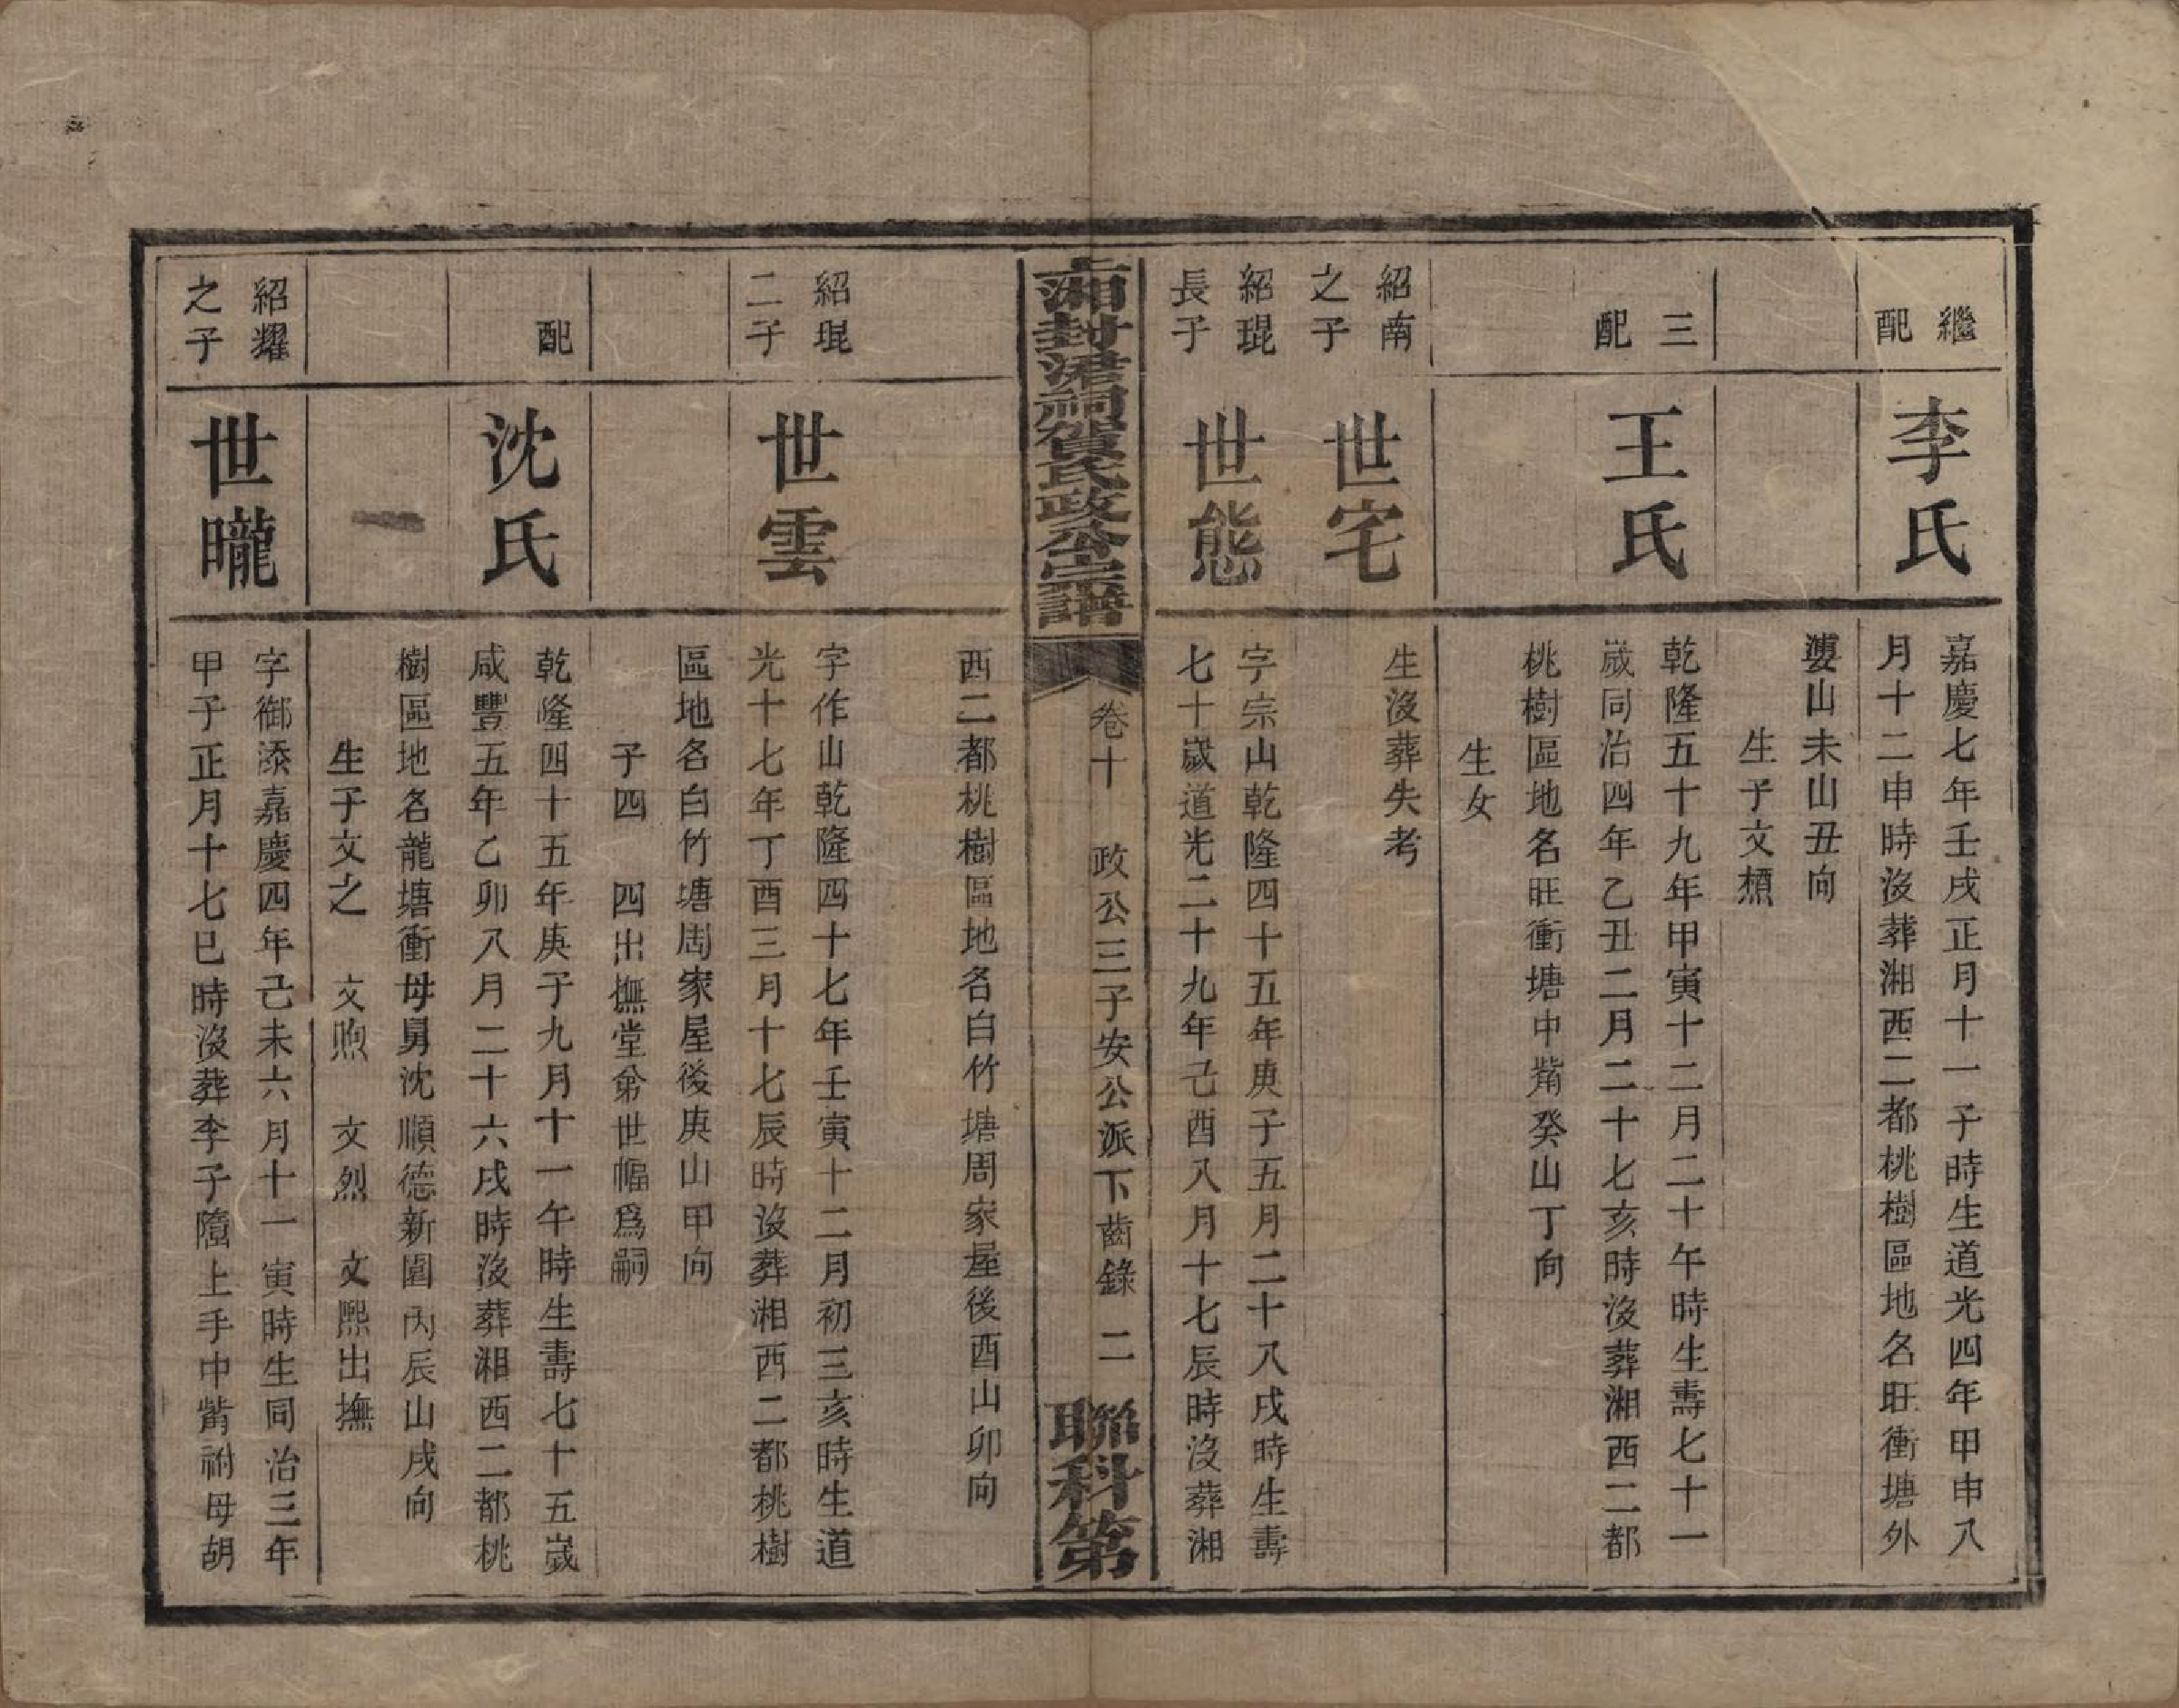 繼配
李氏
嘉慶七年壬戌正月十一子時生道光四年甲申八
月十二申時沒葬湘西二都桃樹區地名旺衝塘外
婆山未山丑向
生子文櫝
三配
王氏
乾隆五十九年甲寅十二月二十午時生壽七十一
歲同治四年乙丑二月二十七亥時沒葬湘西二都
桃樹區地名旺衝塘中觜癸山丁向
生女
紹南之子
世宅
生沒葬失考
紹琨長子
世態
字宗山乾隆四十五年庚子五月二十八戌時生壽
七十歲道光二十九年己酉八月十七辰時沒葬湘
上湘封涒祠賀氏政公宗譜
卷十 政公三子安公派下齒錄 二
聯科第
西二都桃樹區地名白竹塘周家屋後酉山卯向
紹琨二子
世雲
字作山乾隆四十七年壬寅十二月初三亥時生道
光十七年丁酉三月十七辰時沒葬湘西二都桃樹
區地名白竹塘周家屋後庚山甲向
子四 四出撫堂弟世幅爲嗣
配
沈氏
乾隆四十五年庚子九月十一午時生壽七十五歲
咸豐五年乙卯八月二十六戌時沒葬湘西二都桃
樹區地名龍塘衝母舅沈順德新園內辰山戌向
生子文之 文煦 文烈 文熙出撫
紹耀之子
世曨
字御添嘉慶四年己未六月十一寅時生同治三年
甲子正月十七巳時沒葬李子隨上手中觜祔母胡